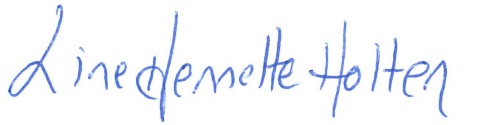 Line Hennette Holten